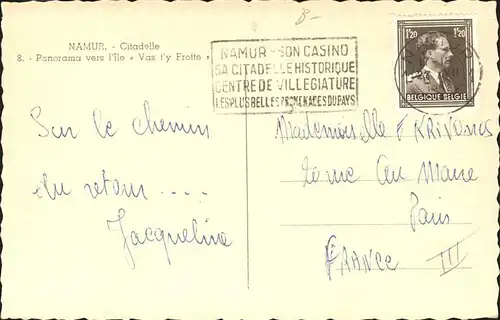 B-
NAMUR. - Citadelle
8. - Panorama vers l'île « Vas t'y Frotte »
NAMUR - SON CASINO
SA CITADELLE HISTORIQUE
CENTRE DE VILLEGIATURE
LES PLUS BELLES PROMENADES DU PAYS
1F20 1F20
BELGIQUE BELGIE
Sur le chemin
du retour ....
Jacqueline
Mademoiselle F KRIVONOS
Paris
FRANCE III